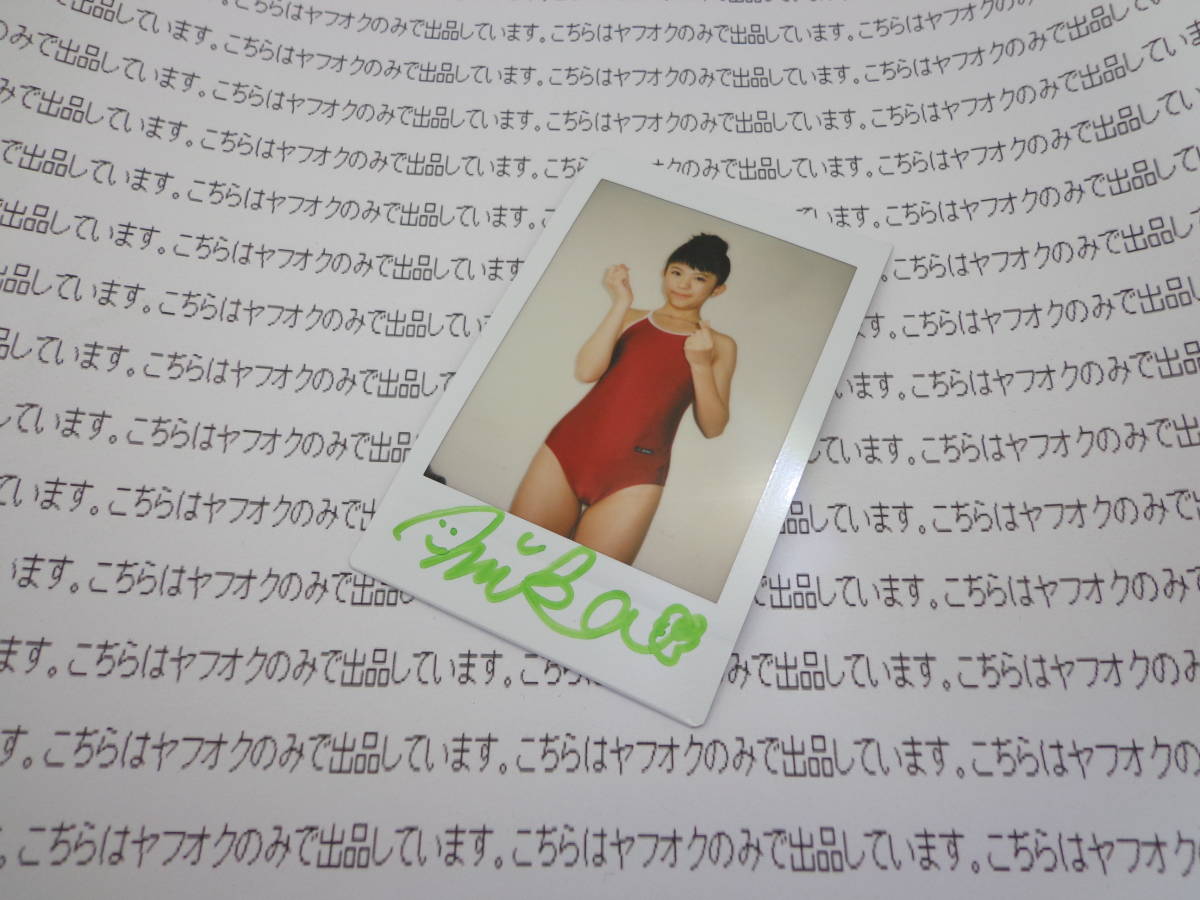 のみで出品しています。こちらはヤフオクのみで出品しています。こちらはヤフオクのみで出品しています。
で出品しています。こちらはヤフオクのみで出品しています。こちらはヤフオクのみで出品しています。こちらはヤフオクのみで出品しています。
のみで出品しています。こちらはヤフオクのみで出品しています。こちらはヤフオクのみで出品しています。こちらはヤフオクのみで出品しています。
みで出品しています。こちらはヤフオクのみで出品しています。こちらはヤフオクのみで出品しています。こちらはヤフオクのみで出品しています。
で出品しています。こちらはヤフオクのみで出品しています。こちら オクのみで出品しています。こちらはヤフオクのみで出品しています。
で出品しています。こちらはヤフオクのみで出品しています。こ います。こちらはヤフオクのみで出品しています。
出品しています。こちらはヤフオクのみで出品しています 。こちらはヤフオクのみで出品しています。
品しています。こちらはヤフオクのみで出品してい ます。こちらはヤフオクのみで出品しています
品しています。こちらはヤフオクのみで出品して います。こちらはヤフオクのみで出品しています
しています。こちらはヤフオクのみで出品 しています。こちらはヤフオクのみで出品し
ています。こちらはヤフオクのみで出 品しています。こちらはヤフオクのみで出品し
います。こちらはヤフオクのみで出品し で出品しています。こちらはヤフオクのみで出品
ます。こちらはヤフオクのみで出品しています。こちら みで出品しています。こちらはヤフオクのみで出
す。こちらはヤフオクのみで出品しています。こちらはヤフオクのみで出品しています。こちらはヤフオクの
。こちらはヤフオクのみで出品しています。こちらはヤフオクのみで出品しています。こちらはヤフオク